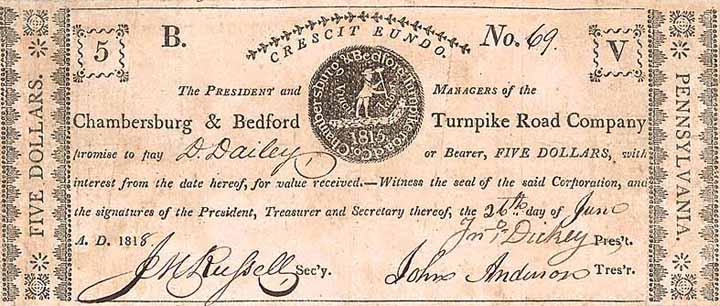 5 B. CRESCIT EUNDO. No. 69. V
The PRESIDENT and MANAGERS of the
Chambersburg & Bedford Turnpike Road Company
promise to pay D. Dailey or Bearer, FIVE DOLLARS, with
interest from the date hereof, for value received.—Witness the seal of the said Corporation, and
the signatures of the President, Treasurer and Secretary thereof, the 26th day of June
A. D. 1818. Jno. Dickey Pres't.
J M Russell Sec'y. John Anderson Tres'r.
FIVE DOLLARS.
PENNSYLVANIA.
Chambersburg & Bedford Turnpike
1815